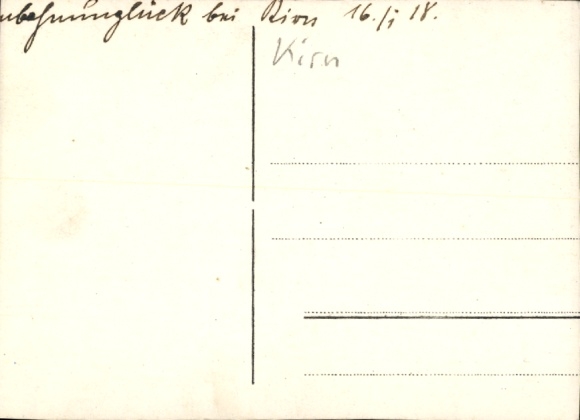 nbahnunglück bei Kirn 16./i 18.
Kirn